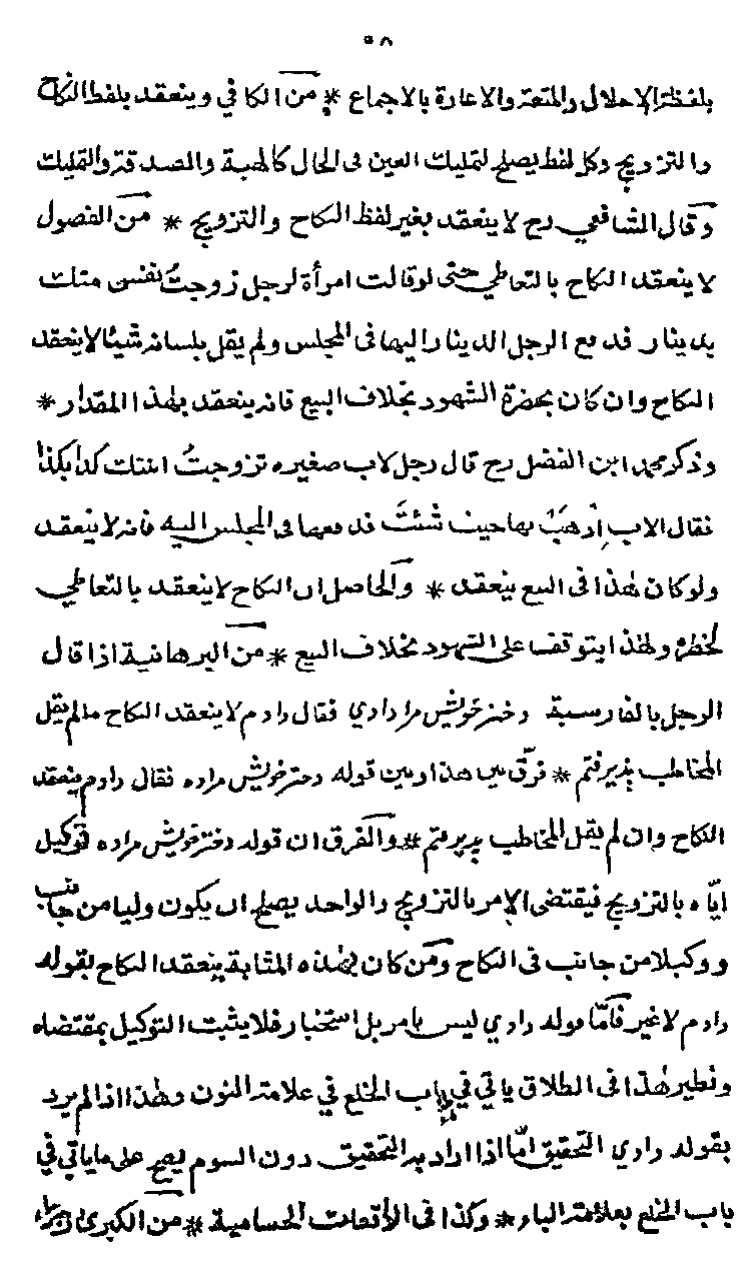 ٥٨
بلفظة الاحلال والمتعة والاعارة بالاجماع * من الكافي وينعقد بلفظ النكاح
والتزويج وكل لفظ يصلح لتمليك العين فى الحال كالهبة والصدقة والتمليك
وقال الشافعي رح لا ينعقد بغير لفظ النكاح والتزويج * من الفصول
لا ينعقد النكاح بالتعاطي حتى لو قالت امرأة لرجل زوجتُ نفسى منك
بدينار فدفع الرجل الدينار اليها فى المجلس ولم يقل بلسانه شيئا لا ينعقد
النكاح وان كان بحضرة الشهود بخلاف البيع فانه ينعقد بهذا المقدار *
وذكر محمد ابن الفضل رح قال رجل لاب صغيره تزوجتُ ابنتك كذا بكذا
فقال الاب اِذْهَبْ بها حيث شئتَ فدفعها فى المجلس اليه فانه لا ينعقد
ولو كان هٰذا فى البيع ينعقد * والحاصل ان النكاح لا ينعقد بالتعاطي
لخطره ولهٰذا يتوقف على الشهود بخلاف البيع * من البرهانية اذا قال
الرجل بالفارسية دختر خويش مرا دادي فقال دادم لا ينعقد النكاح مالم يقل
المخاطب پذيرفتم * فرّق بين هذا وبين قوله دختر خويش مراده فقال دادم ينعقد
النكاح وان لم يقل المخاطب پذيرفتم * والفرق ان قوله دختر خويش مراده توكيل
ايّاه بالتزويج فيقتضى الامر بالتزويج والواحد يصلح ان يكون وليا من جانب
ووكيلا من جانب فى النكاح ومن كان بهذه المثابة ينعقد النكاح بقوله
دادم لا غير فامّا قوله دادي ليس بامر بل استخبار فلا يثبت التوكيل بمقتضاه
ونظير هٰذا فى الطلاق ياتي في باب الخلع في علامة النون وهٰذا اذا لم يرد
بقوله دادي التحقيق امّا اذا اراد به التحقيق دون السوم يصح على ما ياتي في
باب الخلع بعلامة الباء * وكذا فى الأقعات الحسامية * من الكبرىٰ